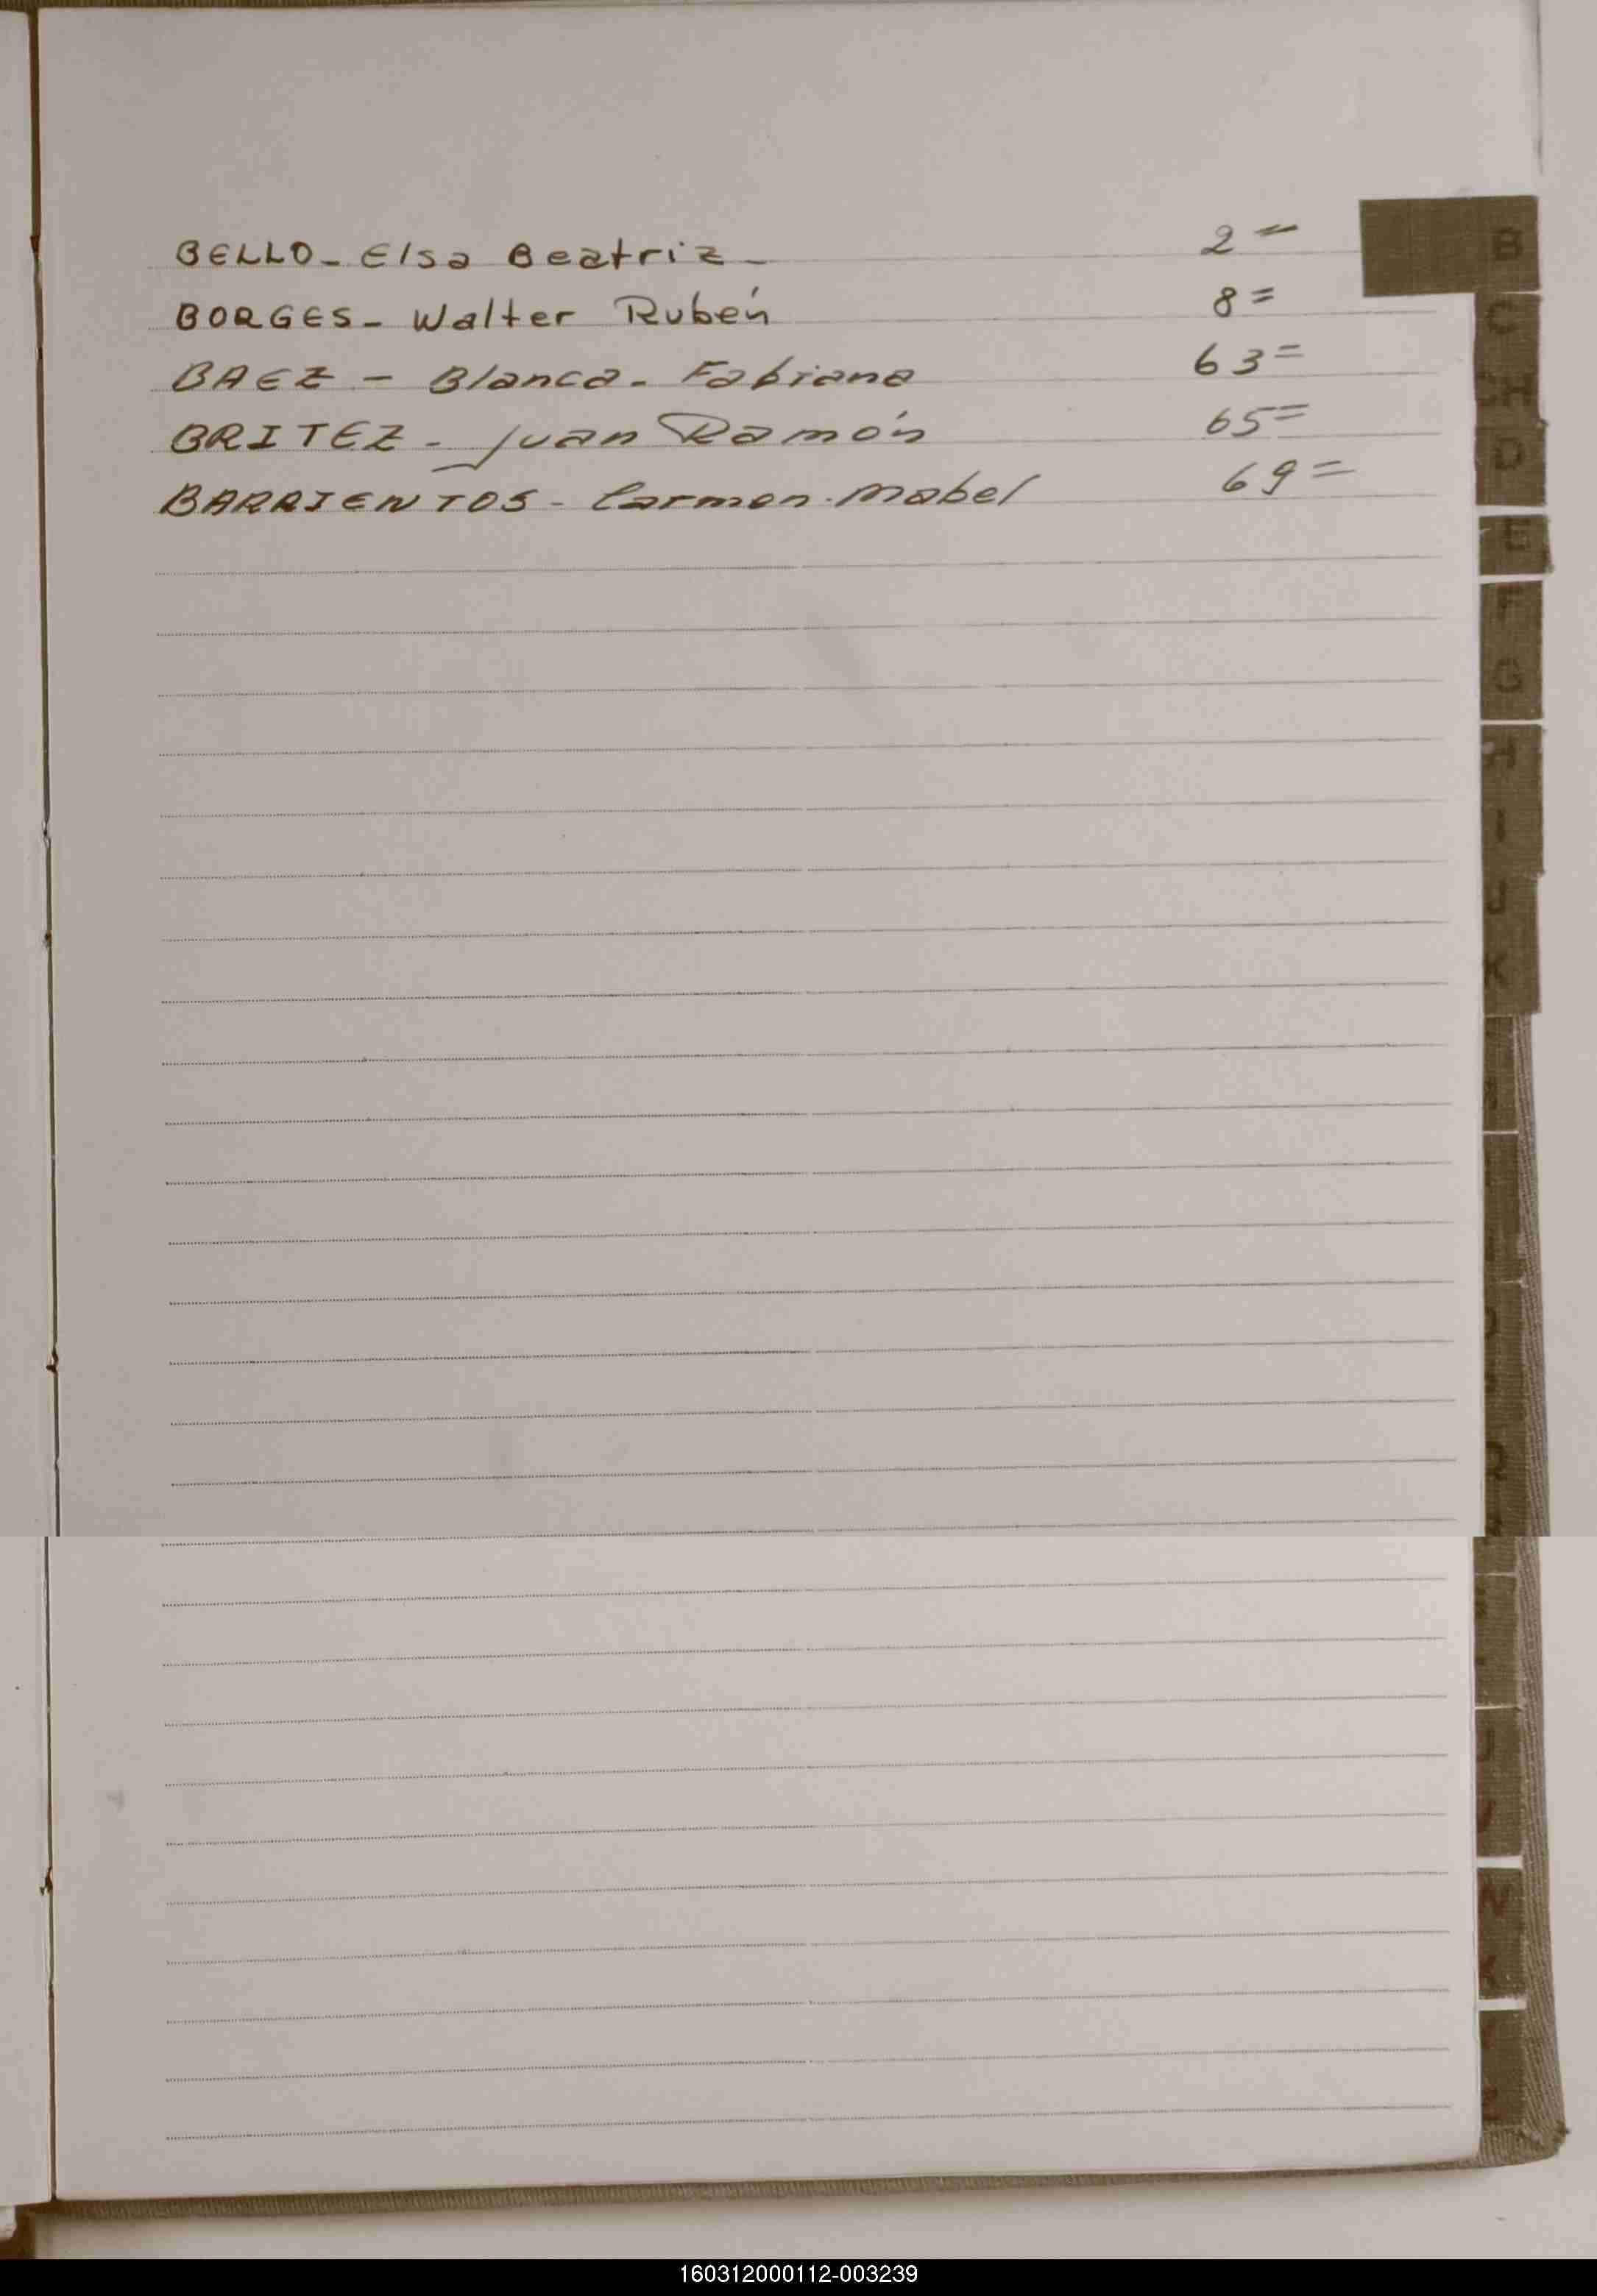 BELLO - Elsa Beatriz - 2 =
BORGES - Walter Rubén 8 =
BAEZ - Blanca - Fabiana 63 =
BRITEZ - Juan Ramón 65 =
BARRIENTOS - Carmen - Mabel 69 =
B
C
CH
D
E
F
G
H
I
J
K
160312000112-003239